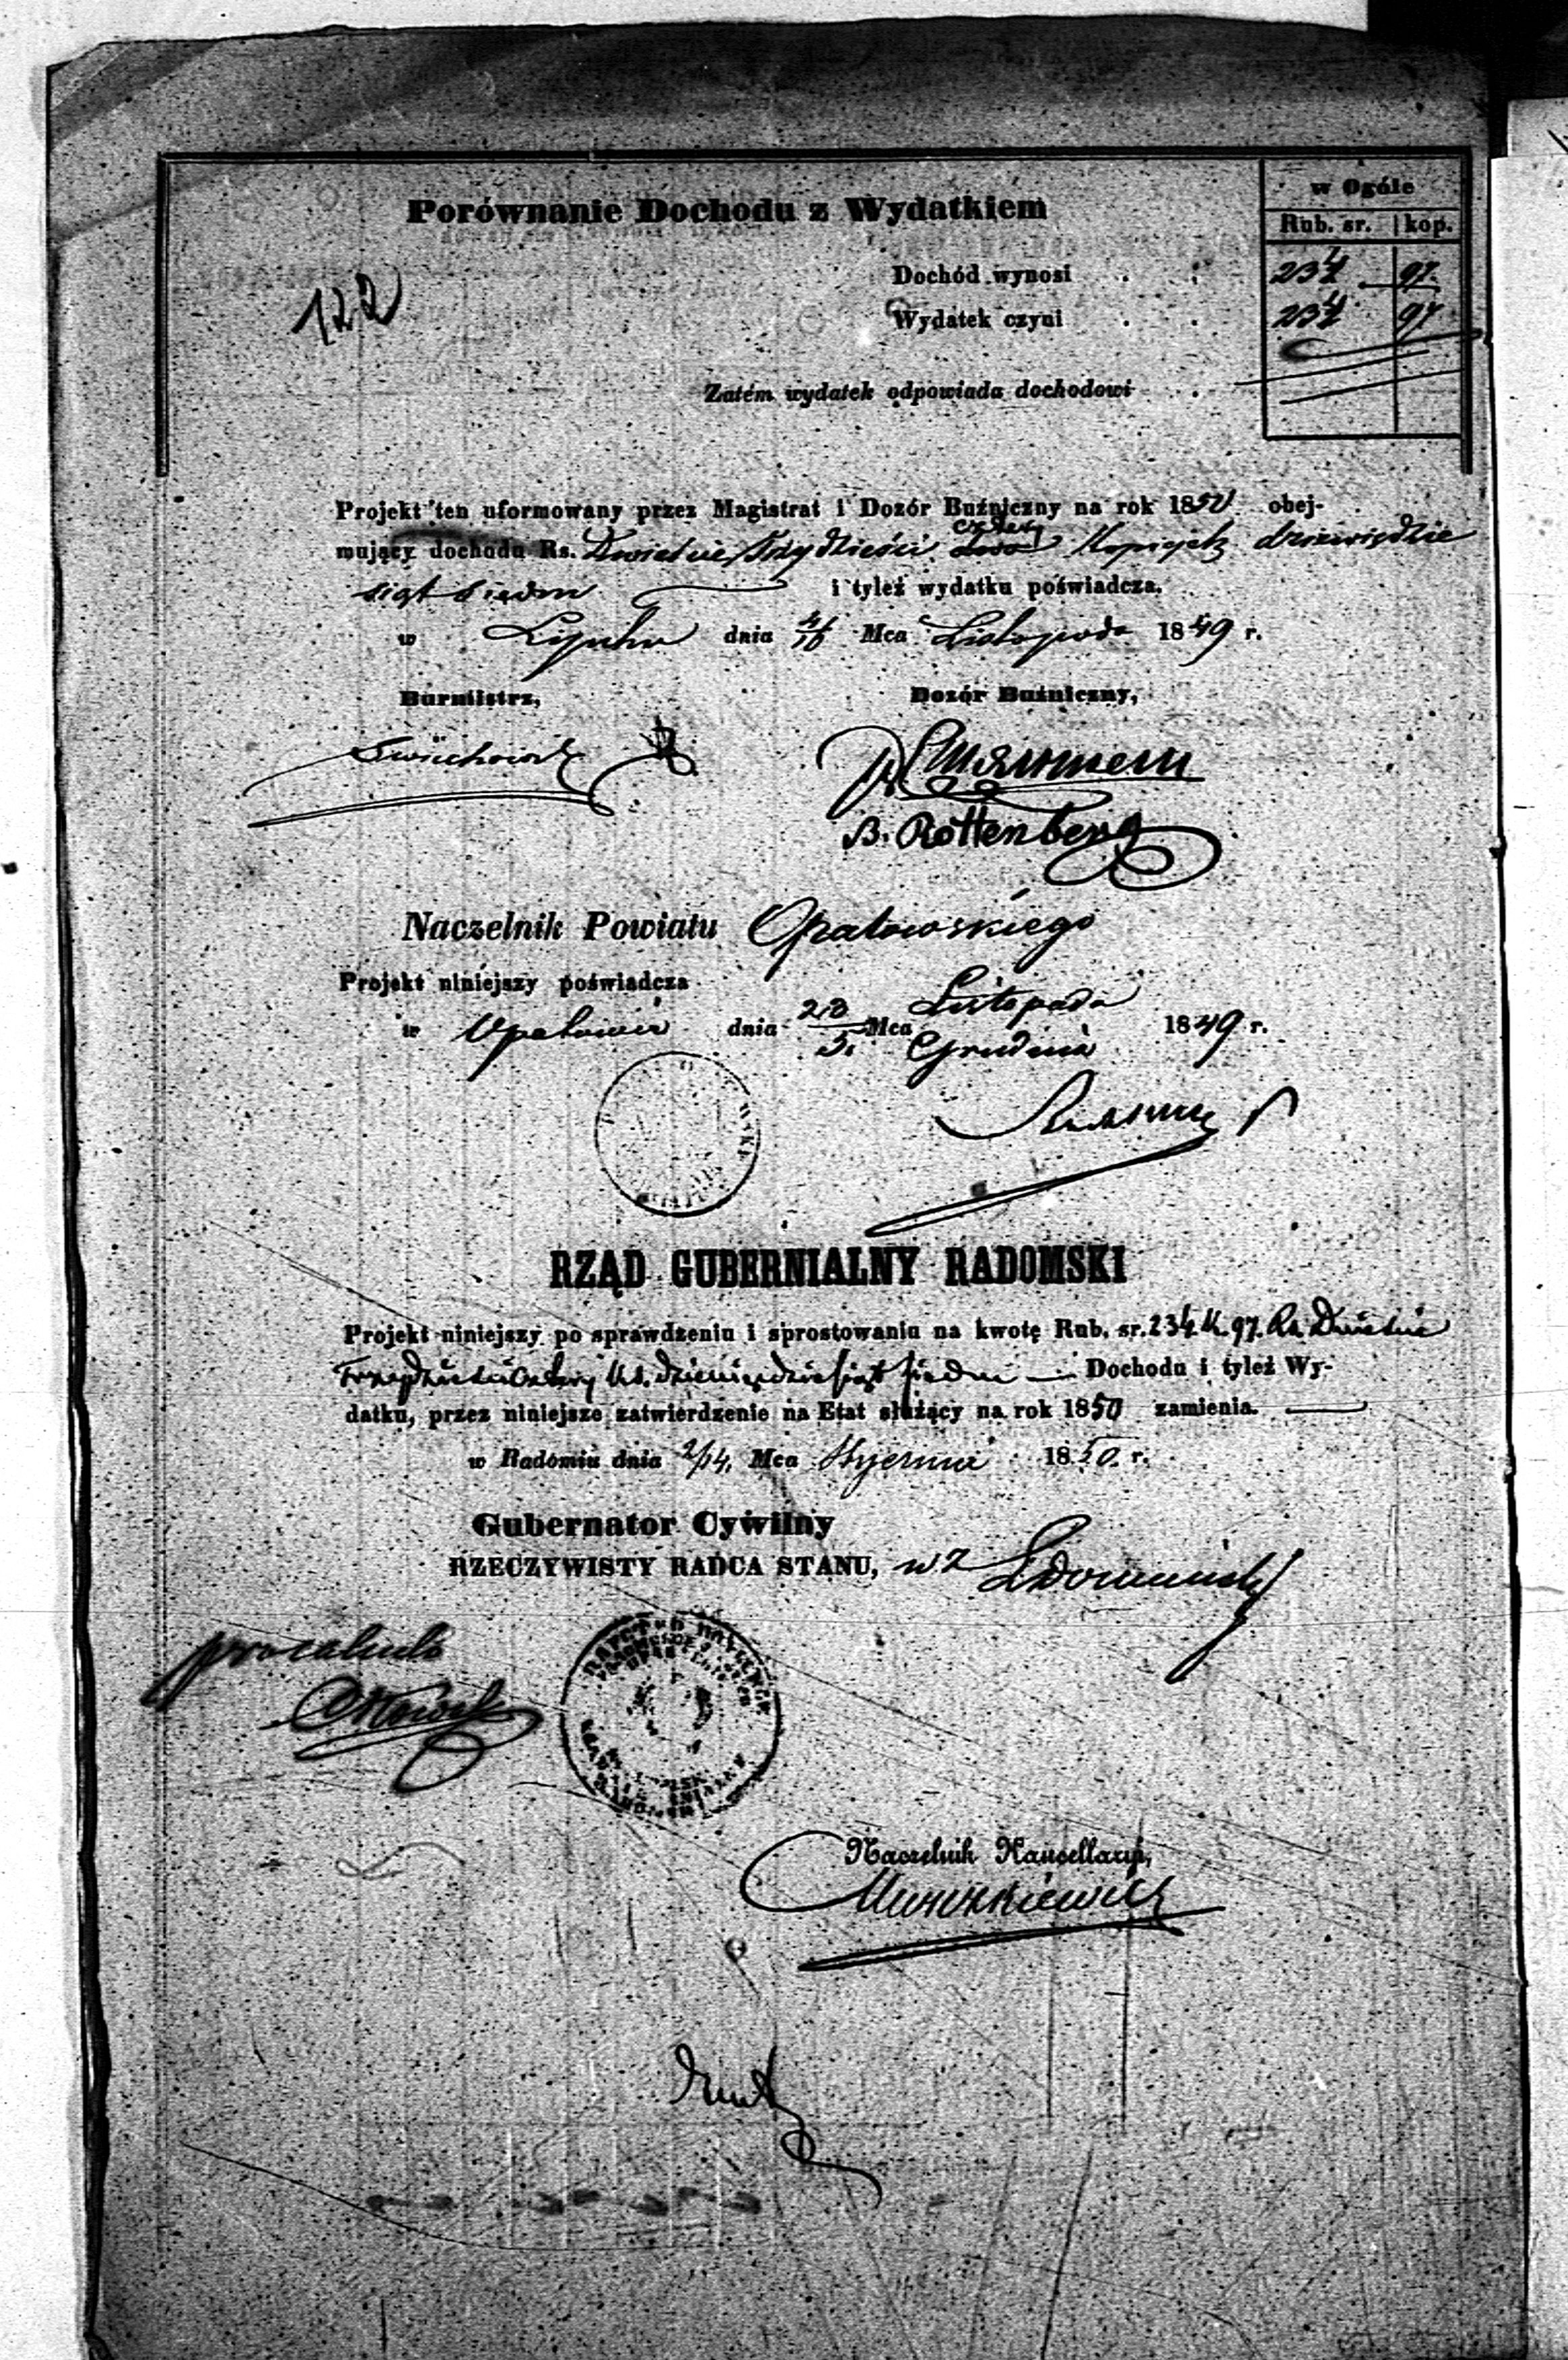 Porównanie Dochodu z Wydatkiem
w Ogóle
Rub. sr. kop.
122
Dochód wynosi . . 234 97
Wydatek czyni . . 234 97
Zatém wydatek odpowiada dochodowi .
Projekt ten uformowany przez Magistrat i Dozór Buźniczny na rok 1850 obej-
cztery
mujący dochodu Rs. Dwieście Trzydzieści dwa Kopiejek dziewięćdzie
siąt siedm i tyleż wydatku poświadcza.
w dnia 4/16 Mca Listopada 1849 r.
Burmistrz, Dozór Buźniczny,
B. Rottenberg
Naczelnik Powiatu Opatowskiego
Projekt niniejszy poświadcza
w Opatowie dnia 23/5 Mca Listopada
Grudnia 1849 r.
RZĄD GUBERNIALNY RADOMSKI
Projekt niniejszy po sprawdzeniu i sprostowaniu na kwotę Rub. sr. 234 k. 97. Rs Dwieście
Trzydzieści Cztery k. dziewięćdziesiąt siedm Dochodu i tyleż Wy-
datku, przez niniejsze zatwierdzenie na Etat służący na rok 1850 zamienia.
w Radomiu dnia 2/14. Mca 1850. r.
Gubernator Cywilny
RZECZYWISTY RADCA STANU, wz
pro calculo
Naczelnik Kancellaryi,